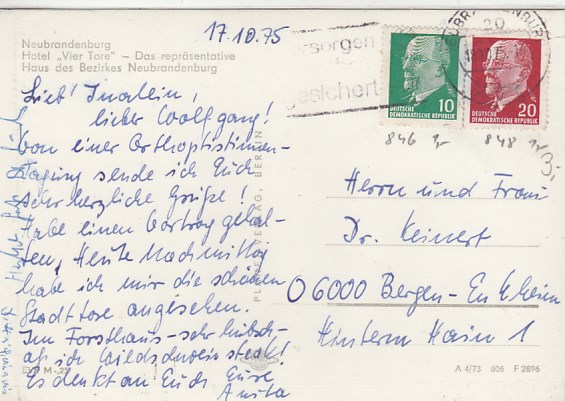 17.10.75
Neubrandenburg
Hotel „Vier Tore" – Das repräsentative
Haus des Bezirkes Neubrandenburg
lieber Woolfgang!
Von einer Orthoptistinnen-
tagung sende ich Euch
sehr herzliche Grüße!
Habe einen Vortrag gehal-
ten, Heute Nachmittag
habe ich mir die schönen
Stadttore angesehen.
Im Forsthaus - sehr hübsch -
aß ich Wildschweinsteak!
Es denkt an Euch Eure
Anita
EVP M -,25
PLANET-VERLAG, BERLIN
rsorgen
gesichert
NEUBRANDENBURG
20
10
DEUTSCHE
DEMOKRATISCHE REPUBLIK
20
DEUTSCHE
DEMOKRATISCHE REPUBLIK
846
848
Herrn und Frau
Dr. Keinert
6000 Bergen-Enkheim
Hinterm Hain 1
A 4/73 606 F 2896